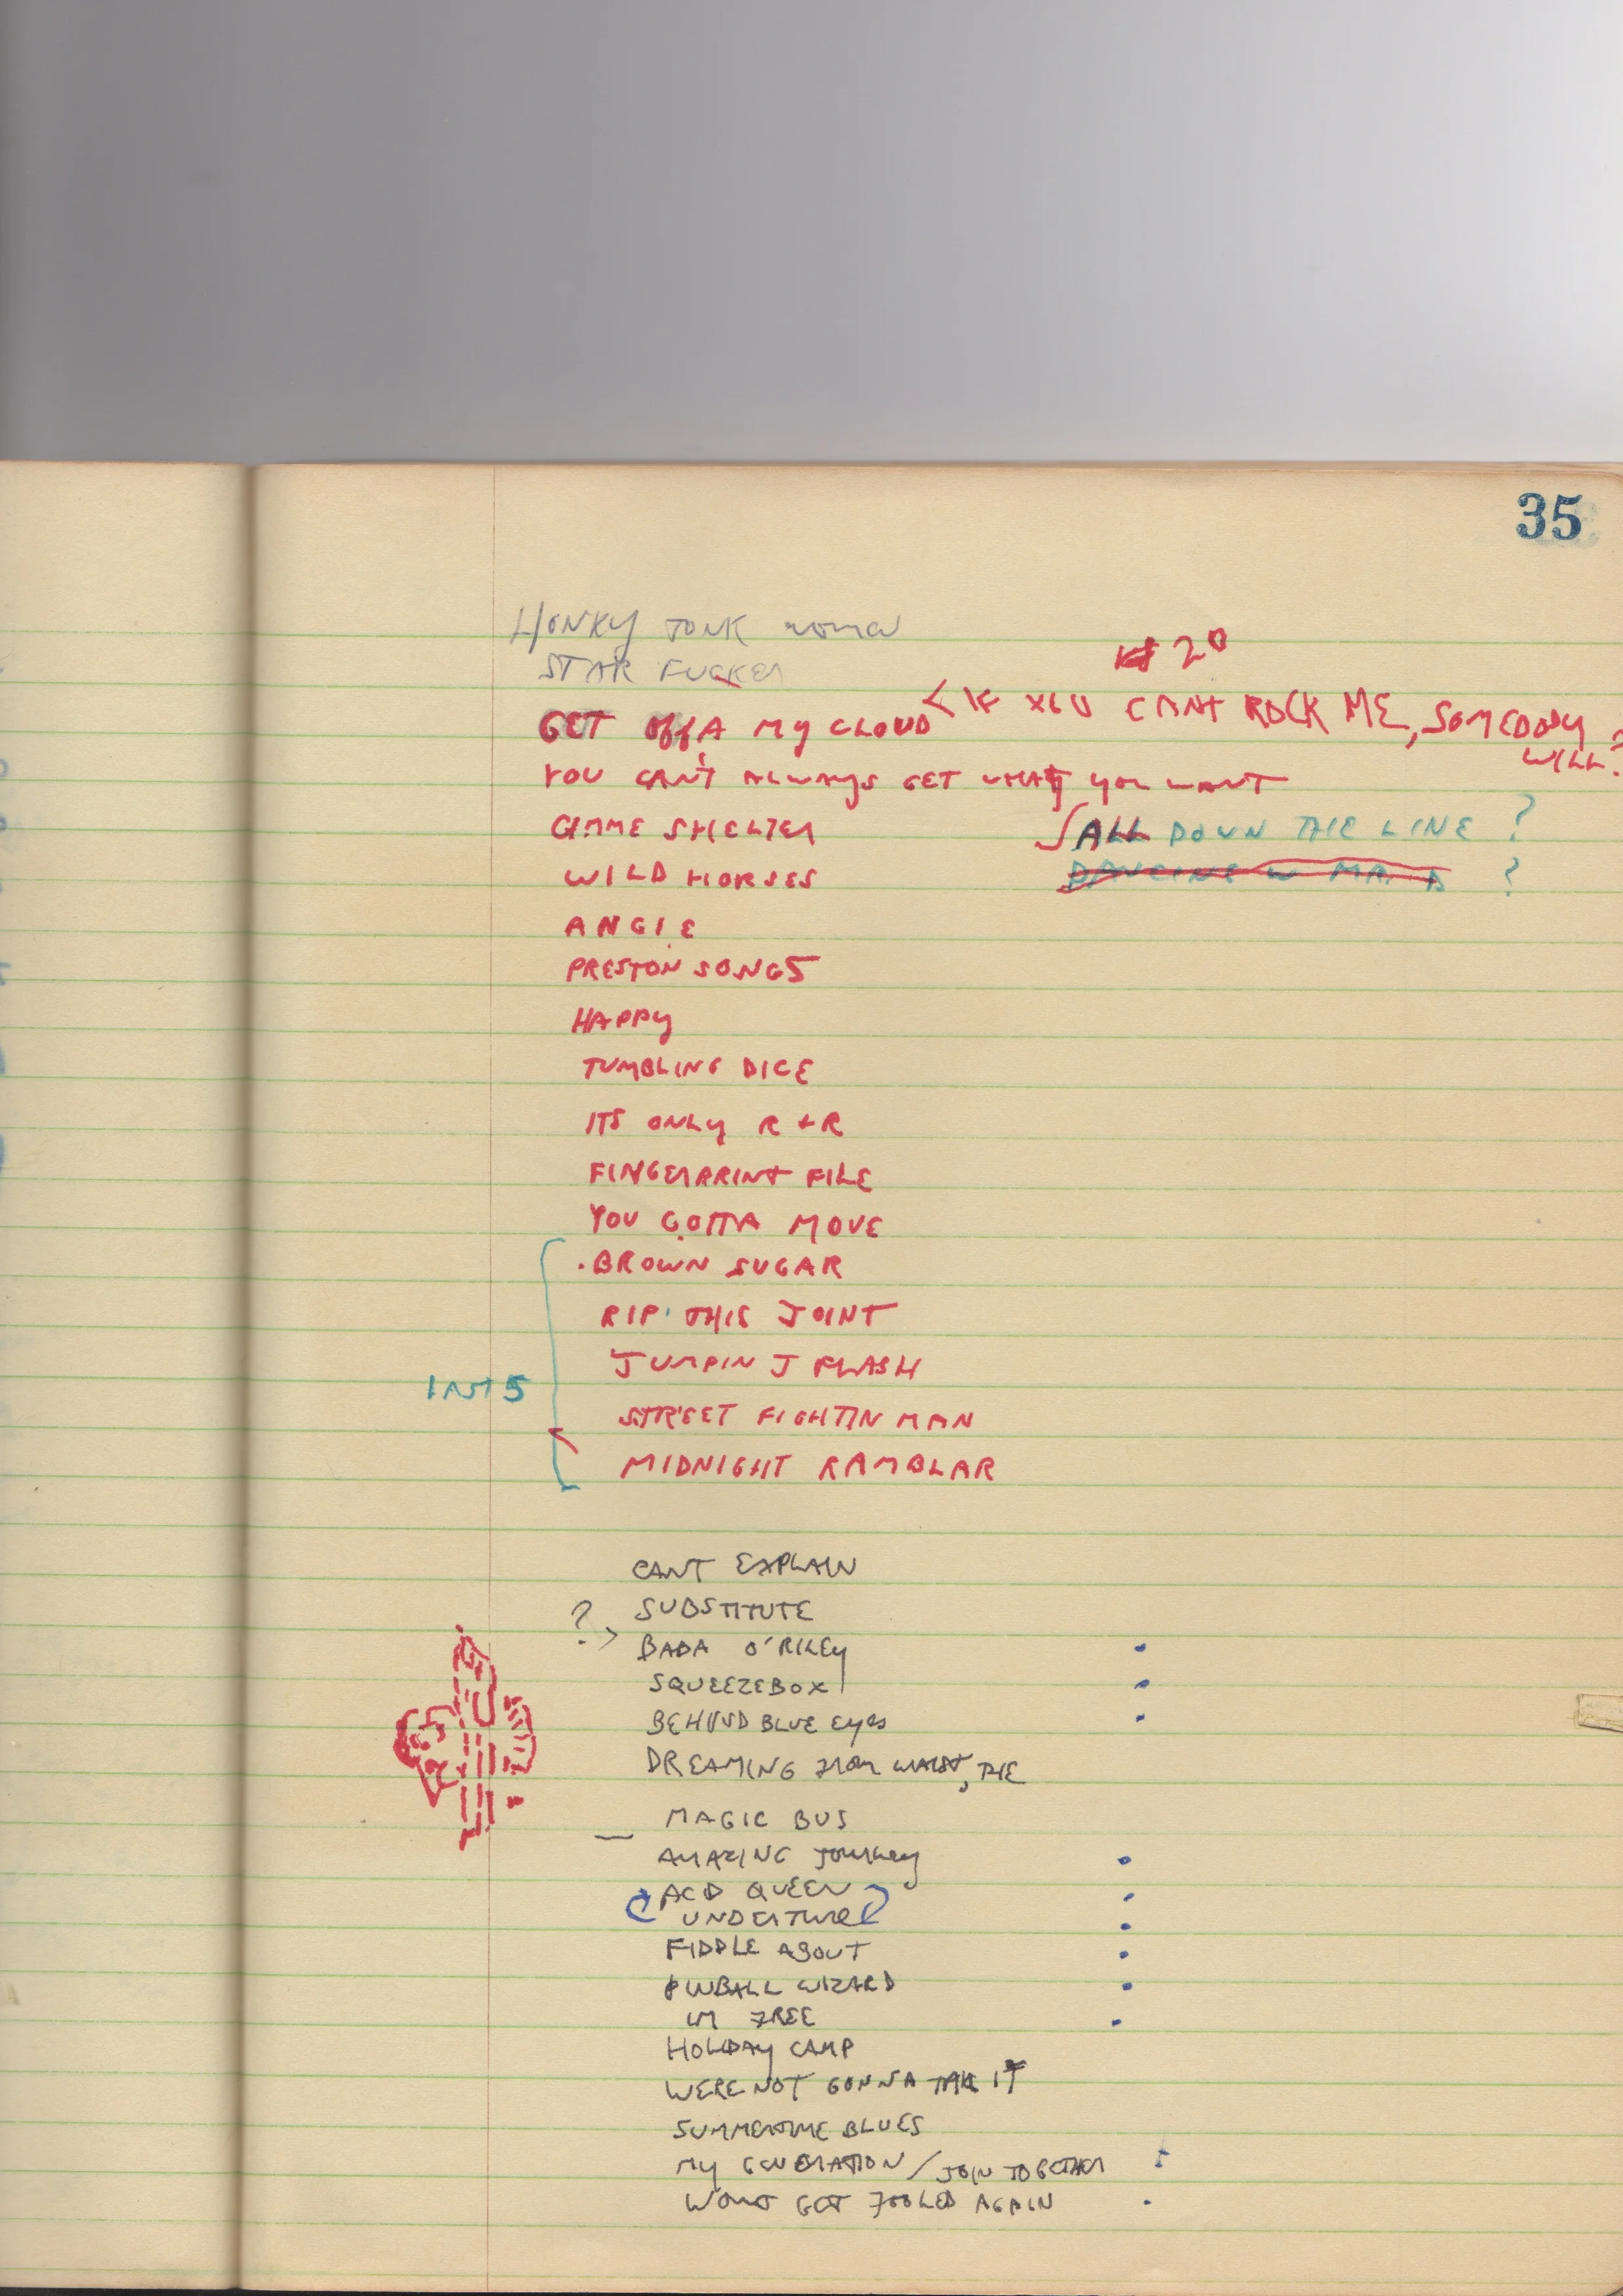 35
HONKY TONK woman
STAR FUCKER
20
GET OffA MY CLOUD < IF YOU CANT ROCK ME, SOMEBODY
WILL?
YOU CAN'T ALWAYS GET WHAT YOU WANT
GIMME SHELTER
ALL DOWN THE LINE ?
WILD HORSES
DANCING W MR. D ?
ANGIE
PRESTON SONGS
HAPPY
TUMBLING DICE
ITS ONLY R + R
FINGERPRINT FILE
YOU GOTTA MOVE
BROWN SUGAR
RIP THIS JOINT
JUMPIN J FLASH
LAST 5
STREET FIGHTIN MAN
MIDNIGHT RAMBLAR
CANT EXPLAIN
? > SUBSTITUTE
BABA O'RILEY
SQUEEZEBOX
BEHIND BLUE EYES
DREAMING FROM WAIST, THE
MAGIC BUS
AMAZING JOURNEY
ACID QUEEN
UNDERTURE
FIDDLE ABOUT
PINBALL WIZARD
IM FREE
HOLIDAY CAMP
WERE NOT GONNA TAKE IT
SUMMERTIME BLUES
MY GENERATION / JOIN TOGETHER
WONT GET FOOLED AGAIN